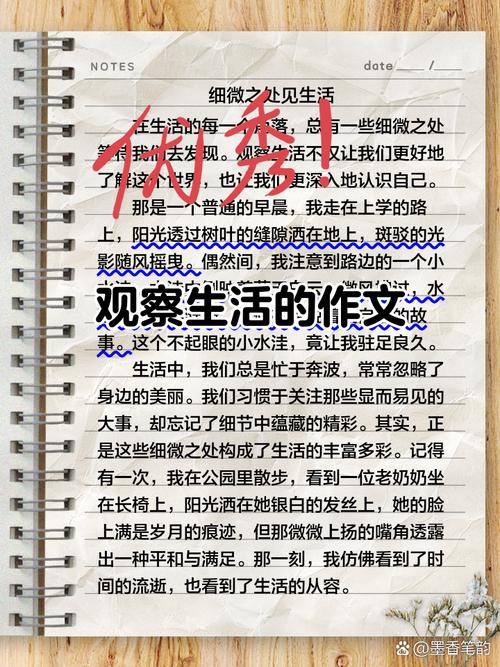 NOTES
date____/____
细微之处见生活
在生活的每一个角落，总有一些细微之处
等待我们去发现。观察生活不仅让我们更好地
了解这个世界，也让我们更深入地认识自己。
优秀！
那是一个普通的早晨，我走在上学的路
上，阳光透过树叶的缝隙洒在地上，斑驳的光
影随风摇曳。偶然间，我注意到路边的一个小
水
微风
过，水
观察生活的作文
的故
事。这个不起眼的小水洼，竟让我驻足良久。
生活中，我们总是忙于奔波，常常忽略了
身边的美丽。我们习惯于关注那些显而易见的
大事，却忘记了细节中蕴藏的精彩。其实，正
是这些细微之处构成了生活的丰富多彩。记得
有一次，我在公园里散步，看到一位老奶奶坐
在长椅上，阳光洒在她银白的发丝上，她的脸
上满是岁月的痕迹，但那微微上扬的嘴角透露
出一种平和与满足。那一刻，我仿佛看到了时
间的流逝，也看到了生活的从容。
墨香笔韵